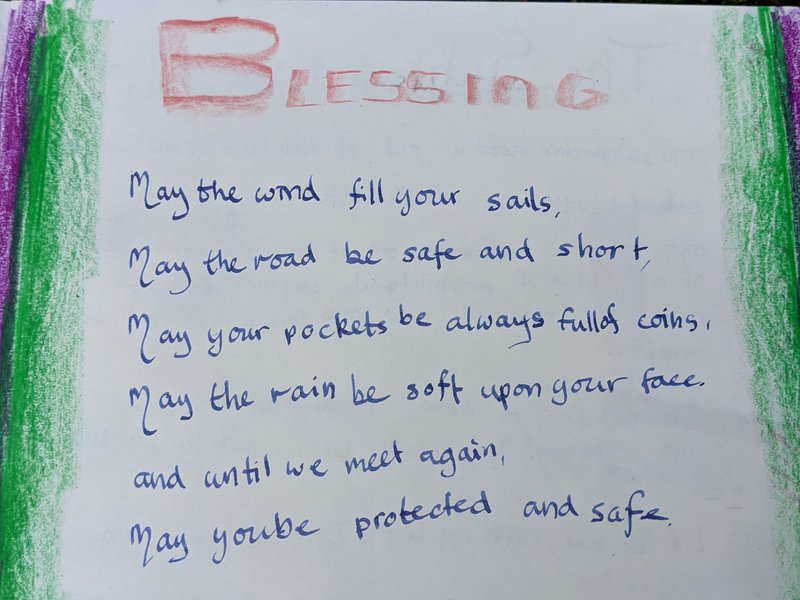 BLESSING
May the wind fill your sails,
May the road be safe and short,
May your pockets be always full of coins,
May the rain be soft upon your face.
and until we meet again,
May you be protected and safe.